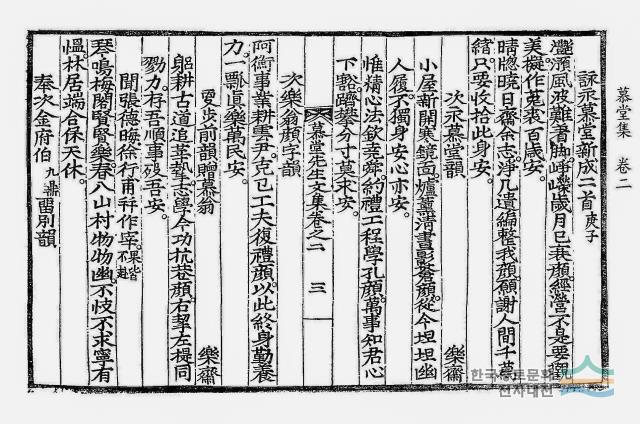 慕堂集 卷二
詠永慕堂新成二首 庚子
灩澦風波難著脚崢嶸歲月已衰顔經營不是要觀
美擬作菟裘百歲安
晴牎曉日齋余志淨几遺編整我顔願謝人間千萬
緖只要收拾此身安
次永慕堂韻 樂齋
小屋新開寒鏡面爐薰淸晝影蒼顔從今坦坦幽
人履不獨身安心亦安
惟精心法欽堯舜約禮工程學孔顔萬事知君心
下豁躋攀分寸莫求安
慕堂先生文集卷之二 三
次樂翁顔字韻
阿衡事業耕雲尹克己工夫復禮顔以此終身勤養
力一瓢眞樂萬民安
更步前韻贈慕翁 樂齋
躬耕古道追莘摯志學今功抗巷顔右挈左提同
勠力存吾順事歿吾安
聞張德晦徐行甫幷作宰 果皆不赴
琴鳴梅閣賢賢樂春八山村物物幽不忮不求寧有
慍林居端合保天休
奉次金府伯 九鼎 留別韻
한국유교문화
전자대전